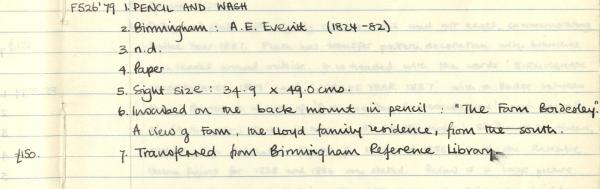 F526'79 1. PENCIL AND WASH
2. Birmingham : A.E. Everitt (1824-82)
3. n.d.
4. Paper
5. Sight size : 34.9 x 49.0 cms.
6. Inscribed on the back mount in pencil : "The Farm Bordesley".
A view of Farm, the Lloyd family residence, from the south.
£150. 7. Transferred from Birmingham Reference Library.